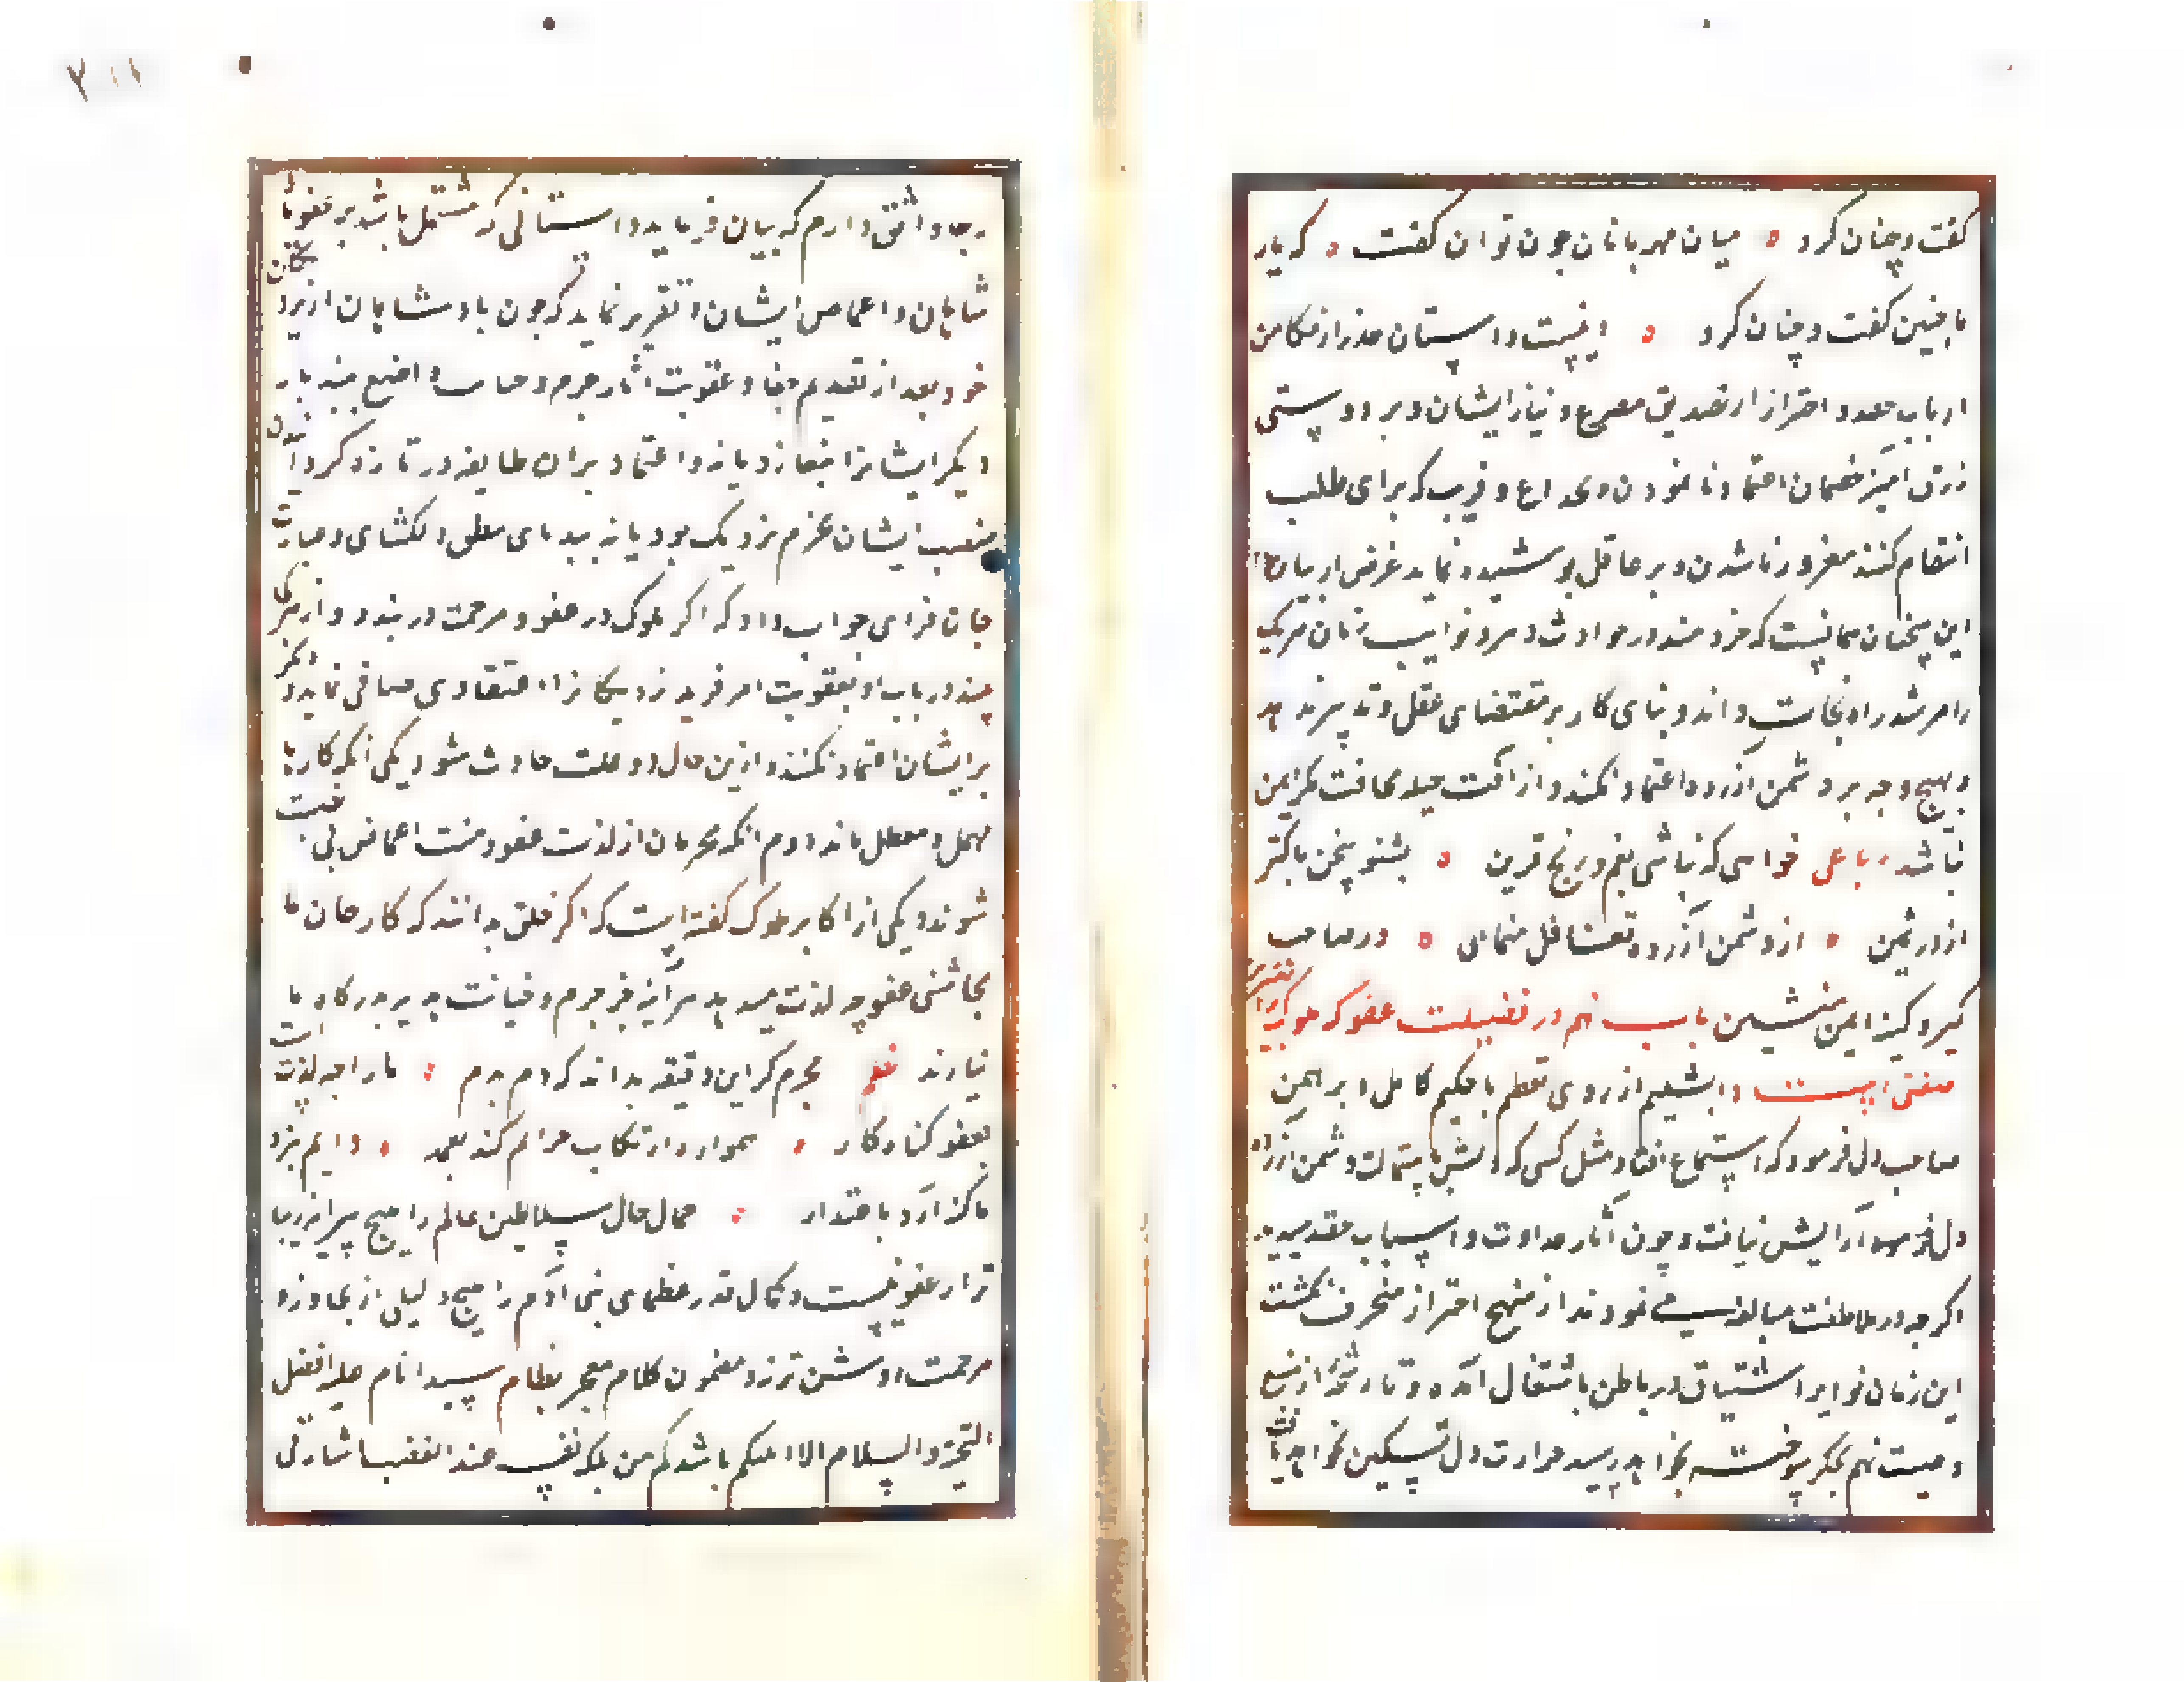 گفت و چنان کرد ه میان مهربانان چون توان گفت ه که یار
ما چنین گفت و چنان کرد ه اینست داستان حذر از مکامن
ارباب حقد و احتراز از تصدیق تضرع و نیاز ایشان و بر دوستی
زرق آمیز خصمان اعتماد نا نمودن و بخداع و فریب که برای طلب
انتقام کنند مغرور ناشدن و بر عاقل پوشیده نماند غرض از بیان
این سخنان همانیست که خردمند در حوادث دهر و نوایب زمان هر یک
را مرشد راه نجات داند و بنای کار بر مقتضای عقل و تدبیر نهد
و بهیچ وجه بر دشمن آزرده اعتماد نکند و از آفت حیله مخافت مکر ایمن
نباشد رباعی خواهی که نباشی بغم و رنج قرین ه بشنو سخن پاکتر
از در ثمین ه از دشمن آزرده تغافل منمای ه در صاحب
کبر و کینه ایمن منشین باب نهم در فضیلت عفو که ملوک را بهترین
صفتی است دابشلیم از روی تعظیم با حکیم کامل و برهمن
صاحب دل فرمود که استماع افتاد مثل کسی که دلش باستمالت دشمن آزرده
دل آرامش نیافت و چون آثار عداوت و اسباب حقد بدید
اگرچه در ملاطفت مبالغه می نمودند از منهج احتراز منحرف نگشت
این زمان نوایر اشتیاق در باطن باشتعال آمده و تا رشحهٔ از منبع
وصیت نهم بجگر سوخته نخواهد رسید حرارت دل تسکین نخواهد یافت
۳۱۱
رجاء واثق دارم که بیان فرماید داستانی که مشتمل باشد بر عفو پا
شاهان و اغماض ایشان و تقریر نماید که چون پادشاهان از نزدیکان
خود بعد از تقدیم جفا و عقوبت آثار جرم و واضح بیند بار
دیگر ایشانرا بنوازد یا نه و اعتماد بران طایفه در تازه گردانیدن
منصب ایشان بحزم نزدیک بود یا نه بیدپای بنطق دلگشای و عبارت
جان فزای جواب داد که اگر ملوک در عفو و مرحمت در بندد و از هر که
در باب او بعقوبت امر فرماید نزدیکانرا اعتقادی صافی نماند و دیگر
بر ایشان اعتماد نکنند و ازین حال دو علت حادث شود یکی آنکه کارها
مهمل و معطل ماند دوم آنکه مجرمان از لذت عفو و منت اغماض بی نصیب
شوند و یکی از اکابر ملوک گفته است که اگر خلق بدانند که کام جان ما
بچاشنی عفو چه لذت میدهد هر آینه جز جرم و خیانت هدیه بدرگاه ما
نیارند نظم مجرم گر این دقیقه بداند که دم بدم ه ما را چه لذتست
بعفو گناه کار ه همواره ارتکاب جرائم کند بعمد ه دایم بنزد
ما گنه آرد باعتذار ه جمال حال سلاطین عالم را هیچ پیرایه زیبا
تر از عفو نیست و کمال قدر عظمای بنی آدم را هیچ دلیلی از تجاوز و
مرحمت روشن تر نه و مضمون کلام معجز نظام سید انام علیه افضل
التحیة والسلام الا انبئکم باشدکم من ملک نفسه عند الغضب اشارتی